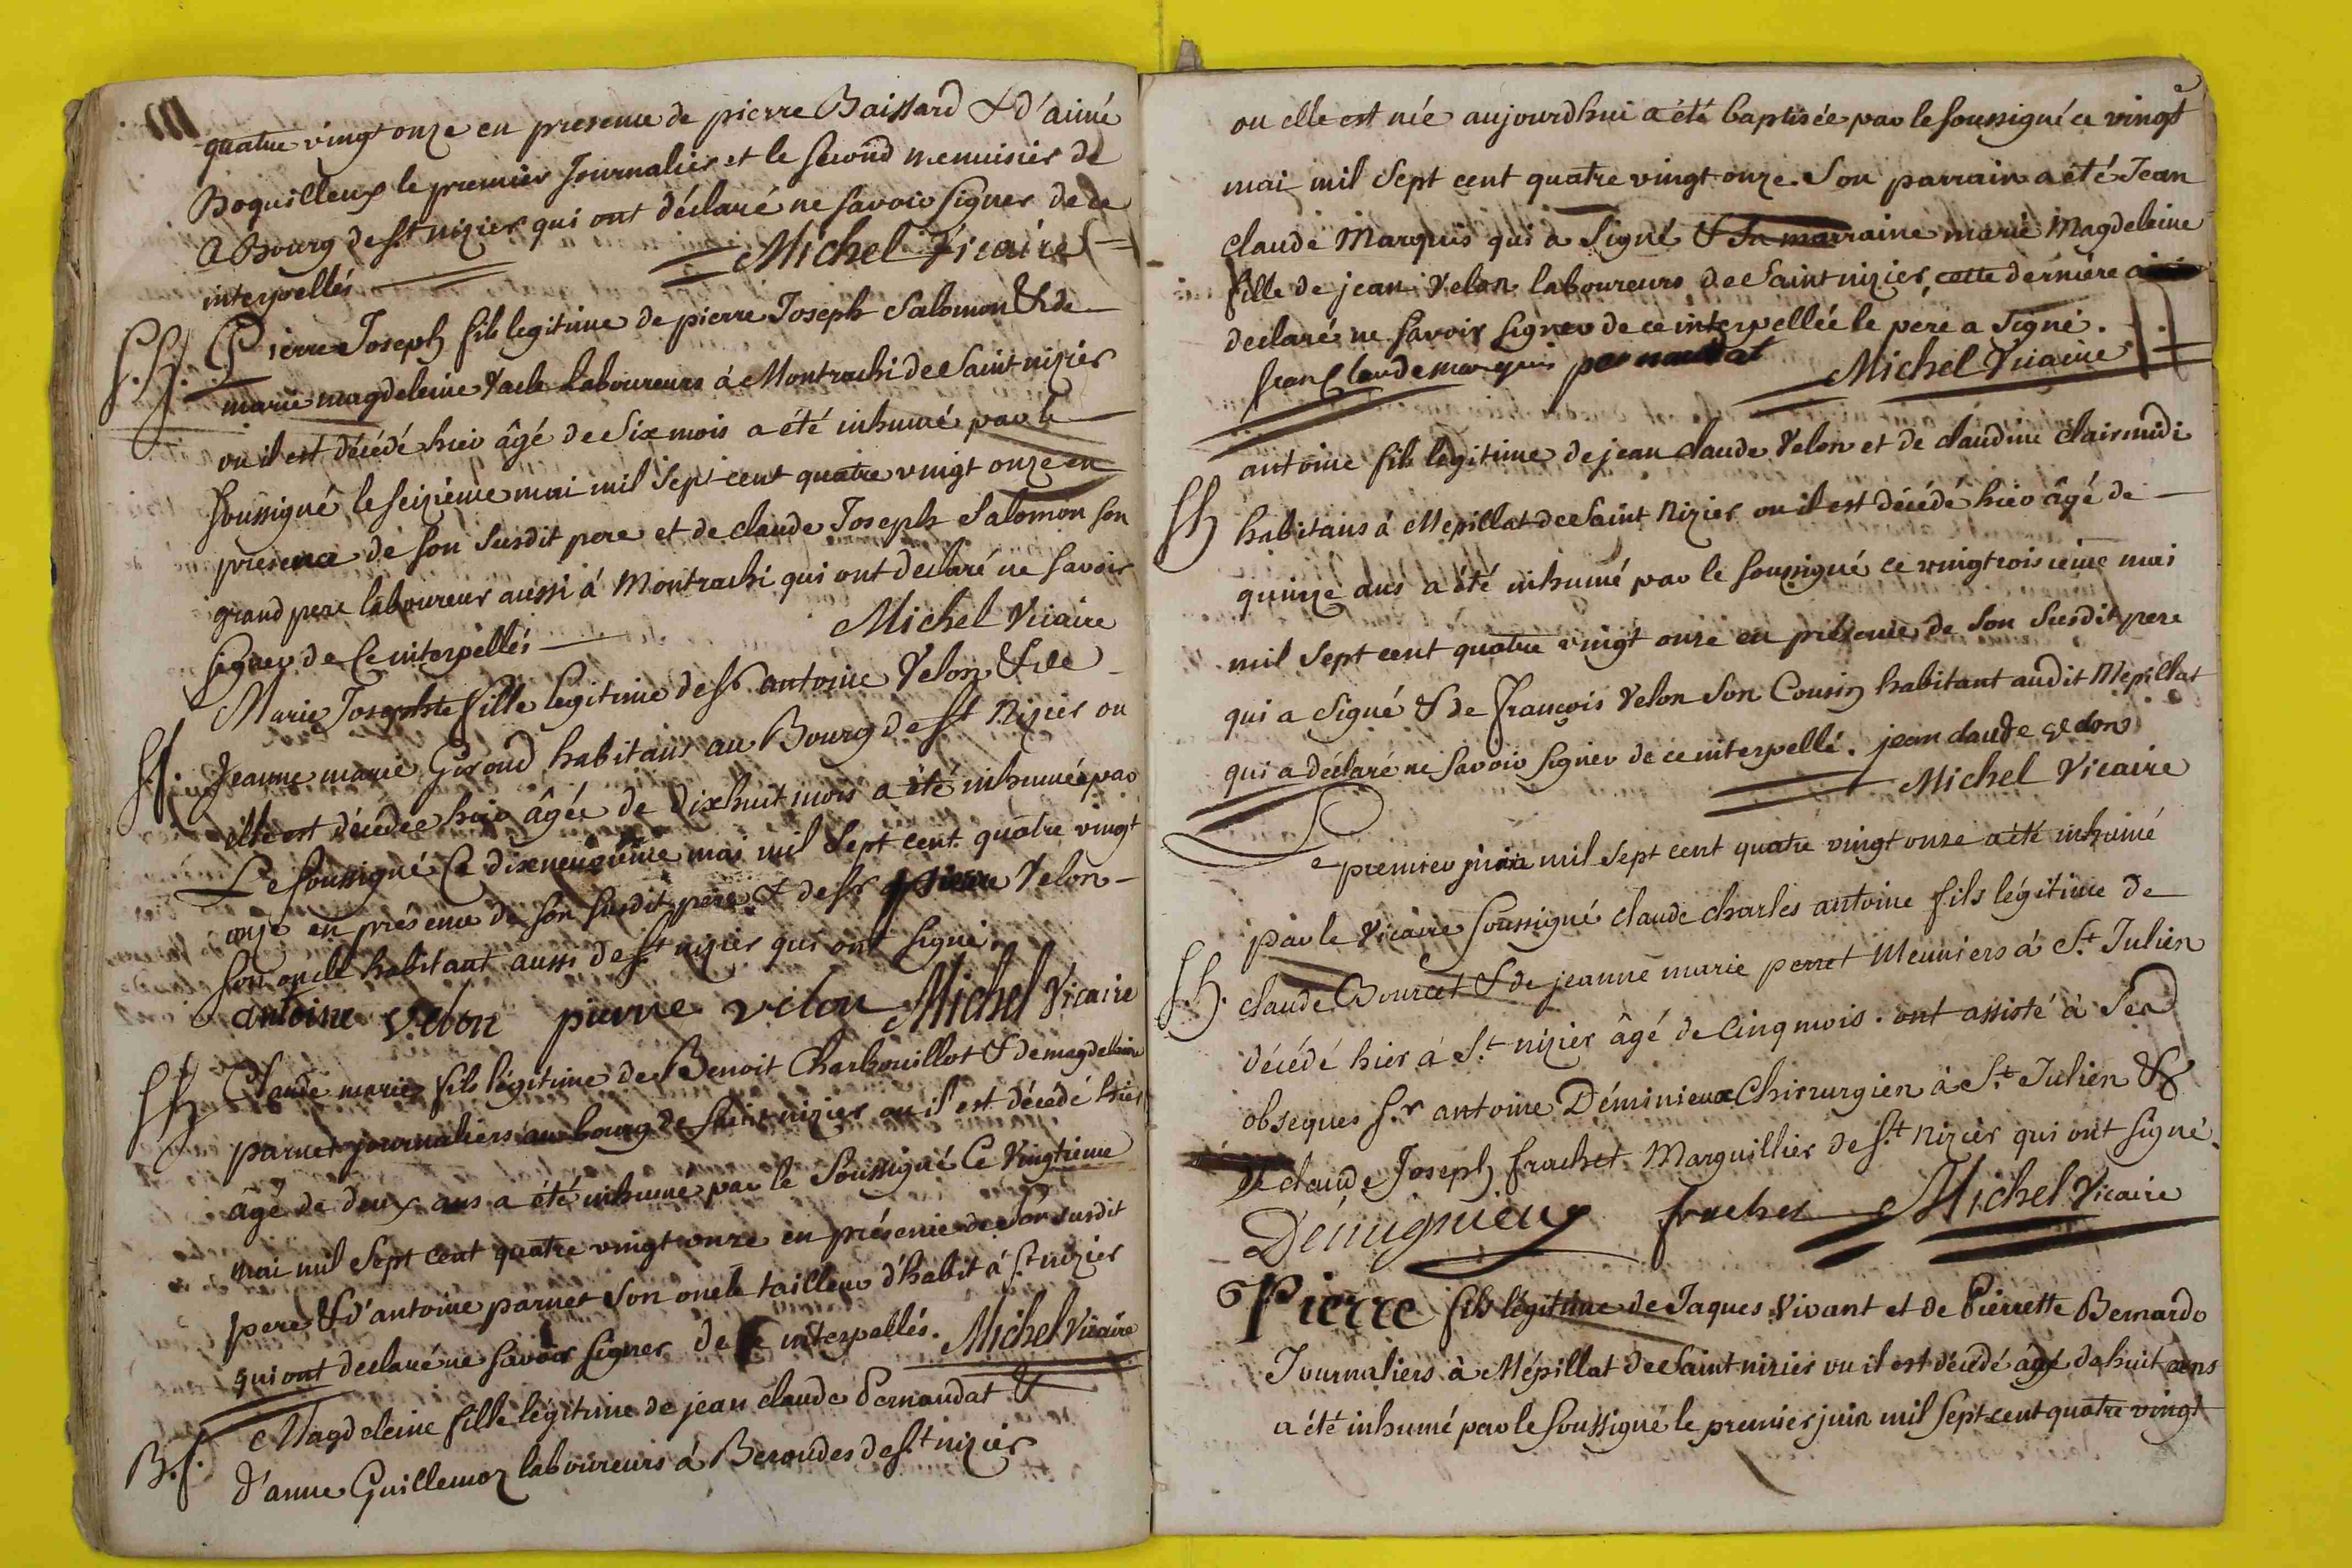 quatre vingt onze en presence de pierre Baissard & d'aimé
Boquilleux le premier Journalier et le second menuisier de
Bourg de St nizier qui ont déclaré ne savoir signer de ce
interpellés Michel Vicaire
S.h. Pierre Joseph fils legitime de pierre Joseph Salomon & de
marie magdeleine Vacle Laboureurs á Montrachi de Saint nizier
ou il est décédé hier âgé de Six mois a été inhumé par le
soussigné le seizieme mai mil sept cent quatre vingt onze en
presence de son susdit pere et de claude Joseph Salomon son
grand pere laboureur aussi á Montrachi qui ont declaré ne savoir
signer de ce interpellés Michel Vicaire
Marie Josephte fille legitime de Sr antoine Velon & de
Sf. Jeanne marie Giroud habitans au Bourg de St Nizier ou
elle est décédée hier âgée de dixhuit mois a été inhumée par
Le soussigné Ce dixneuvième mai mil sept cent quatre vingt
onze en présence de son susdit pere & de Sr pierre Velon
son oncle habitant aussi de St nizier qui ont signé.
antoine velon pierre velon Michel Vicaire
Sh Claude marie fils légitime de Benoit Charbouillot & de magdelaine
parnet journaliers au bourg de saint nizier ou il est décédé hier
âgé de deux ans a été inhumé par le Soussigné Ce Vingtieme
mai mil sept cent quatre vingt onze en présence de son susdit
pere & d'antoine parnet son oncle tailleur d'habit á St nizier
qui ont declaré ne savoir signer de ce interpellés. Michel Vicaire
Magdeleine fille légitime de jean claude Pernaudat &
B.f. d'anne Guillemoz laboureurs á Beroudes de St nizier
ou elle est née aujourdhui a été baptisée par le soussigné ce vingt
mai mil Sept cent quatre vingt onze. Son parrain a été Jean
Claude Marquis qui a Signé & Sa marraine marie Magdeleine
fille de jean Velon laboureurs de Saint nizier, cette derniére a
declaré ne savoir signer de ce interpellée le pere a signé.
jean Claude marquis pernaudat Michel Vicaire
antoine fils légitime de jean claude Velon et de claudine clairmidi
Sh habitans á Mépillat de Saint Nizier ou il est décédé hier âgé de
quinze ans a été inhumé par le soussigné ce vingtroisieme mai
mil Sept cent quatre vingt onze en présence de son susdit pere
qui a signé & de François Velon son Cousin habitant audit Mépillat
qui a déclaré ne savoir signer de ce interpellé. jean claude velon
Michel Vicaire
Le premier juin mil sept cent quatre vingt onze a été inhumé
par le Vicaire soussigné claude charles antoine fils légitime de
S.h. claude Bourcet & de jeanne marie perret Meuniers á St Julien
décédé hier á St nizier âgé de Cinq mois. ont assisté à Sed
obseques Sr antoine Déminieux Chirurgien à St Julien &
de claude Joseph frachet Marguillier de St Nizier qui ont signé.
Démignieux frachet Michel Vicaire
Pierre fils légitime de Jaques Vivant et de Pierrette Bernardo
Journaliers à Mépillat de Saint nizier ou il est décédé âgé de huit ans
a été inhumé par le soussigné le premier juin mil sept cent quatre vingt